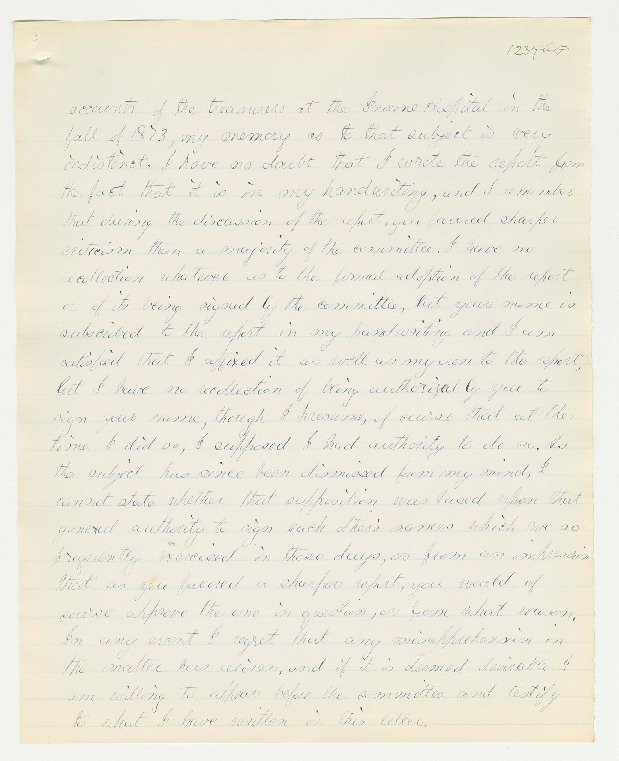 accounts of the treasurers at the Insane Hospital in the
fall of 1873, my memory as to that subject is very
indistinct. I have no doubt that I wrote the report from
the fact that it is in my handwriting, and I remember
that during the discussion of the report, you favored sharper
criticism than a majority of the committee. I have no
recollection whatever as to the formal adoption of the report
or of its being signed by the committee, but your name is
subscribed to the report in my handwriting and I am
satisfied that I affixed it as well as my own to the report,
but I have no recollection of being authorized by you to
sign your name, though I presume, of course that at the
time I did so, I supposed I had authority to do so. As
the subject has since been dismissed from my mind, I
cannot state whether that supposition was based upon that
general authority to sign each others names which we so
frequently exercised in those days, or from an impression
that as you favored a sharper report, you would of
course approve the one in question, or from what reason.
In any event I regret that any misapprehension in
the matter has arisen, and if it is deemed desirable I
am willing to appear before the committee and testify
to what I have written in this letter.